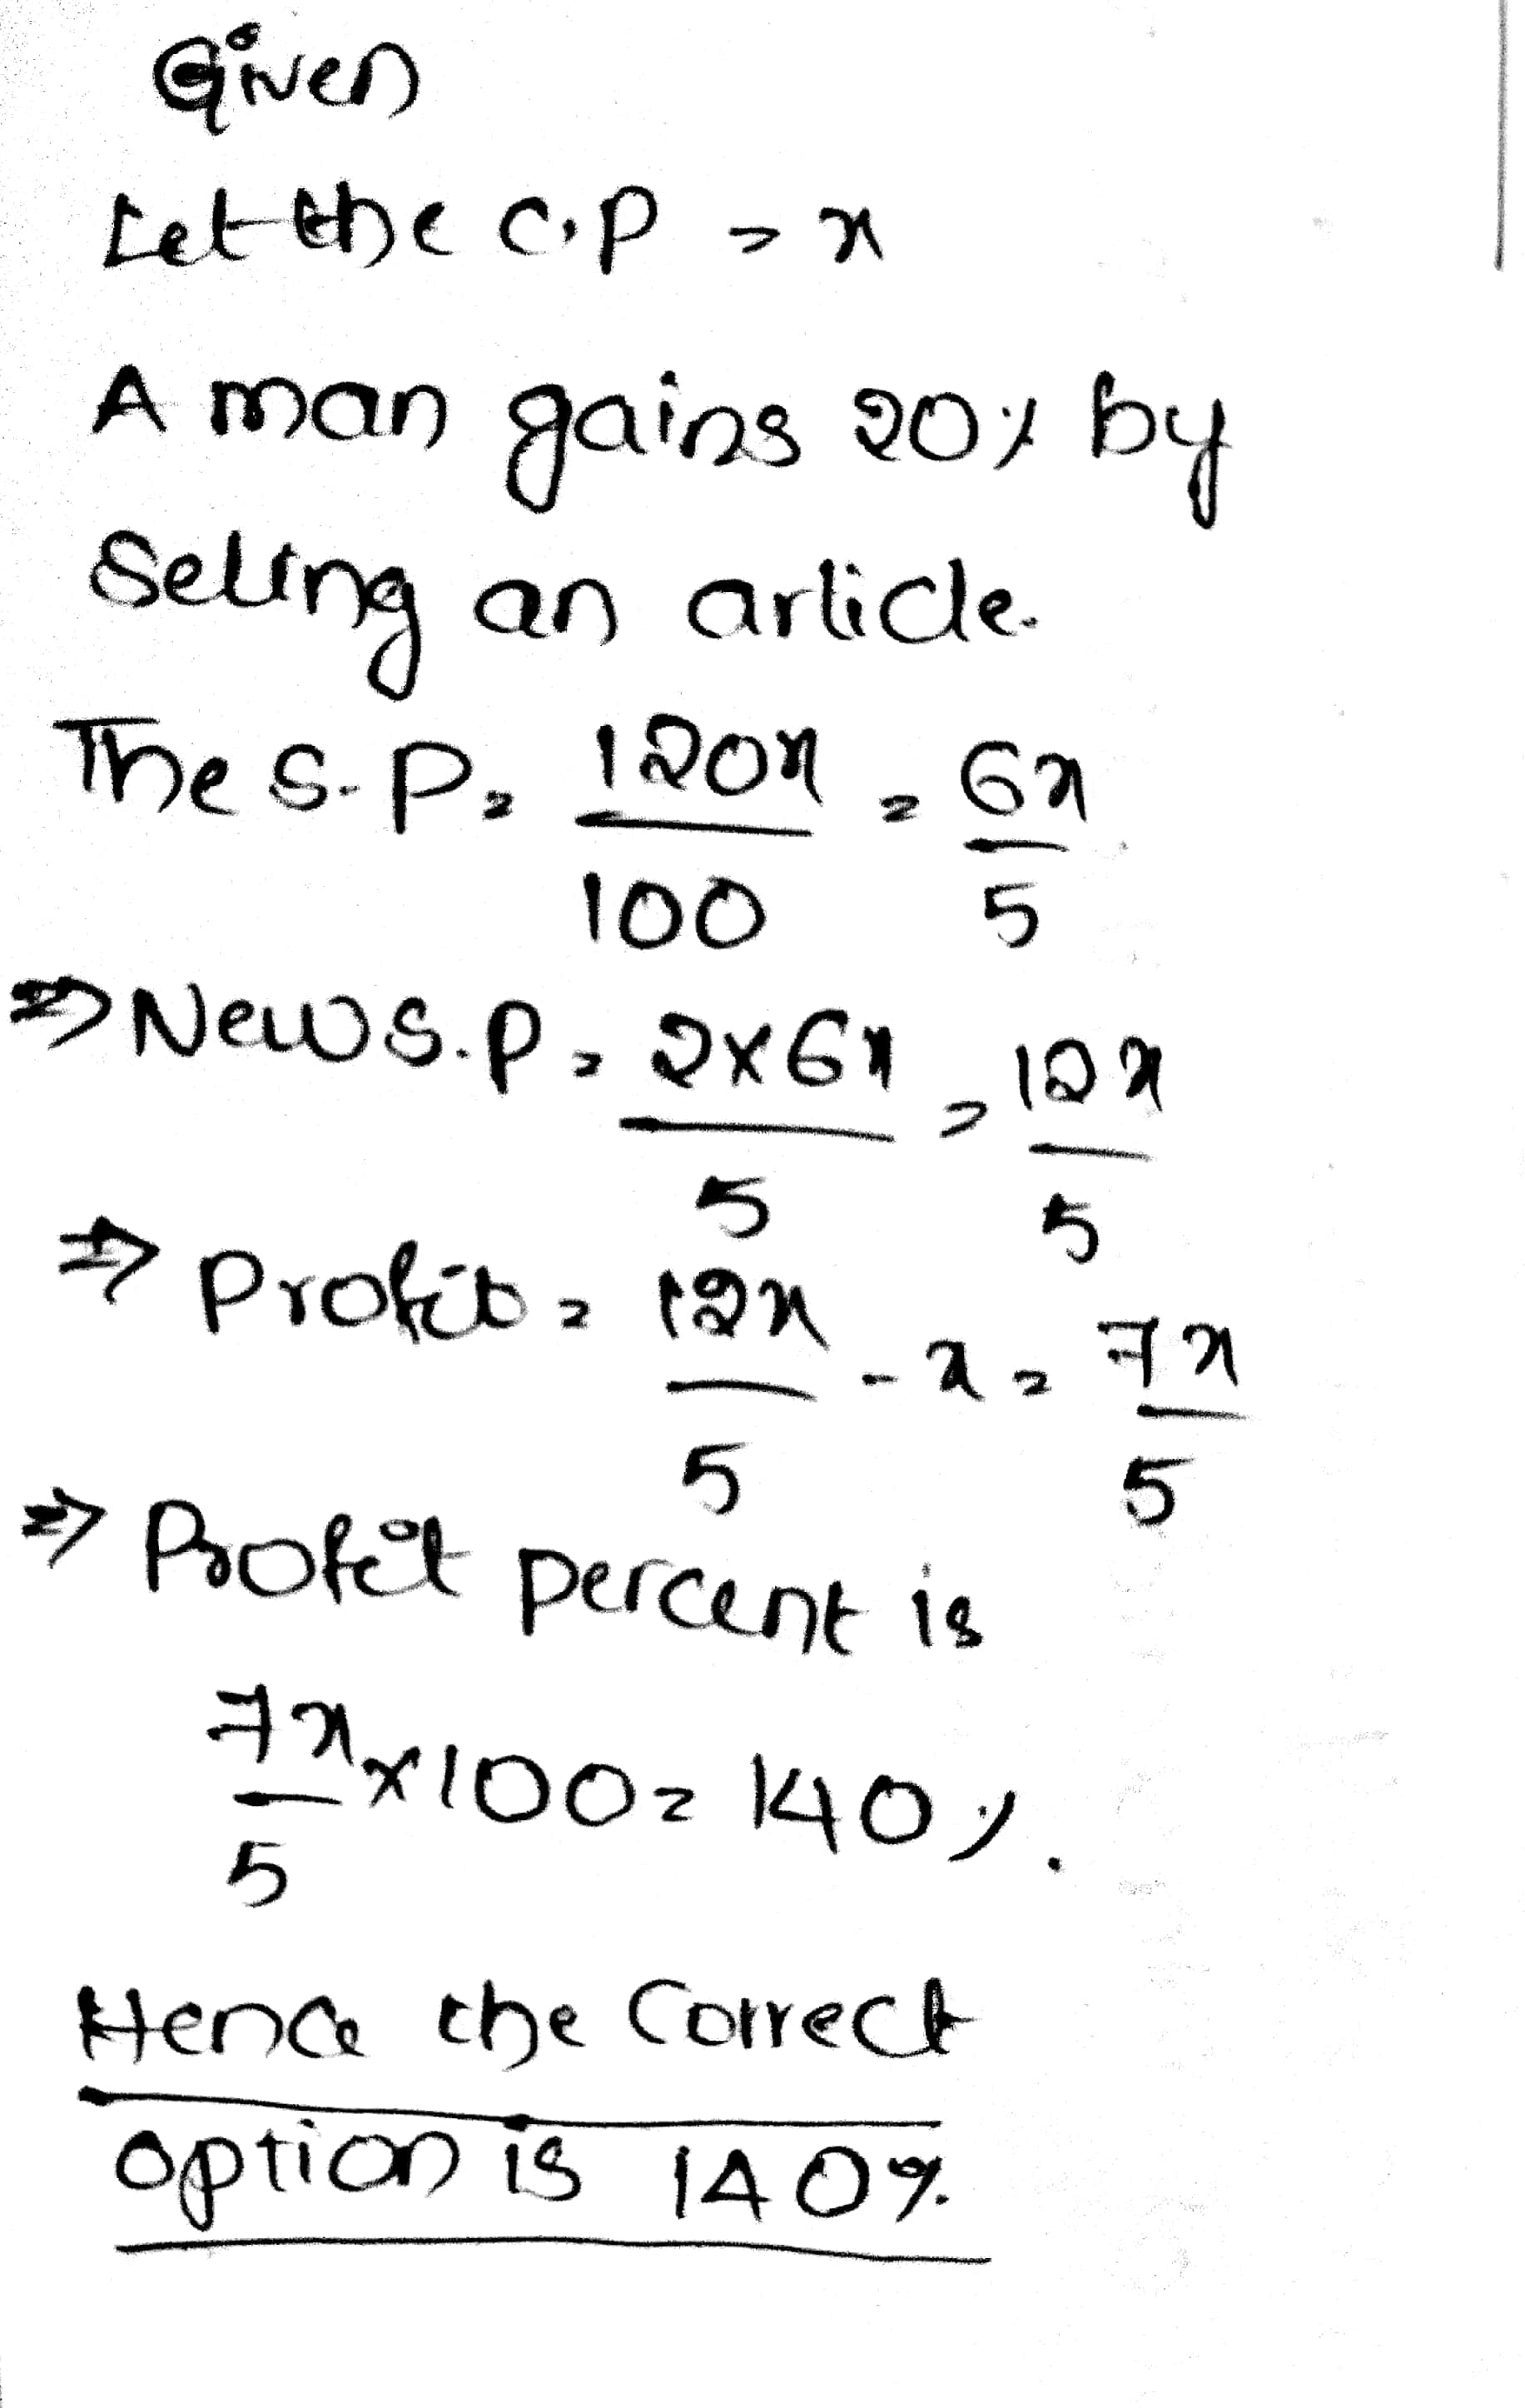 Given
Let the C.P = x
A man gains 20% by
Selling an article.
The S.P = 120x/100 = 6x/5
⇒ New S.P = 2×6x/5 = 12x/5
⇒ Profit = 12x/5 - x = 7x/5
⇒ Profit percent is
7x/5 ×100 = 140%.
Hence the Correct
option is 140%